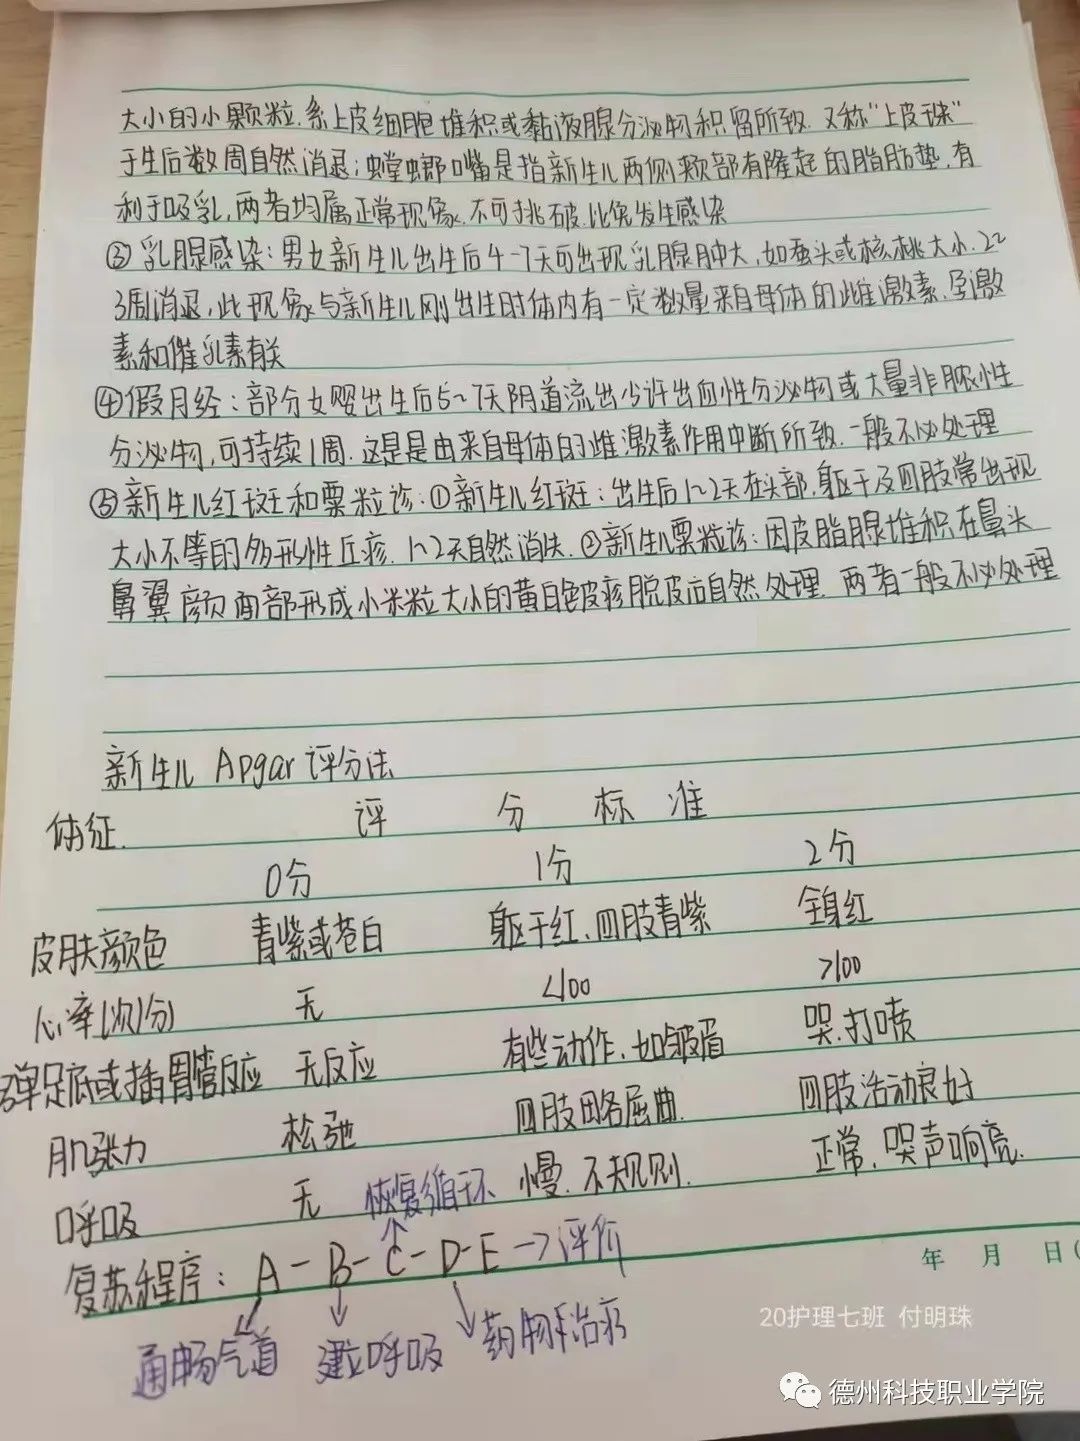 大小的小颗粒.系上皮细胞堆积或黏液腺分泌物积留所致.又称"上皮珠"
于生后数周自然消退;螳螂嘴是指新生儿两侧颊部有隆起的脂肪垫,有
利于吸乳,两者均属正常现象.不可挑破.以免发生感染
③乳腺感染:男女新生儿出生后4-7天可出现乳腺肿大,如蚕头或核桃大小.2~
3周消退,此现象与新生儿刚出生时体内有一定数量来自母体的雌激素.孕激
素和催乳素有关
④假月经:部分女婴出生后5~7天阴道流出少许出血性分泌物或大量非脓性
分泌物,可持续1周.这是是由来自母体的雌激素作用中断所致.一般不必处理
⑤新生儿红斑和粟粒诊:①新生儿红斑:出生后1~2天在头部,躯干及四肢常出现
大小不等的多形性丘疹.1~2天自然消失.②新生儿粟粒诊:因皮脂腺堆积在鼻头
鼻翼颜面部形成小米粒大小的黄白色皮疹脱皮后自然处理.两者一般不必处理
新生儿 Apgar评分法
体征. 评 分 标 准
0分 1分 2分
皮肤颜色 青紫或苍白 躯干红.四肢青紫 全身红
心率(次/分) 无 <100 >100
弹足底或插胃管反应 无反应 有些动作.如皱眉 哭.打喷
肌张力 松弛 四肢略屈曲. 四肢活动良好
呼吸 无 慢.不规则. 正常,哭声响亮.
恢复循环
复苏程序: A-B-C-D-E→评价
通畅气道 建立呼吸 药物治疗
年 月 日(
20护理七班 付明珠
德州科技职业学院